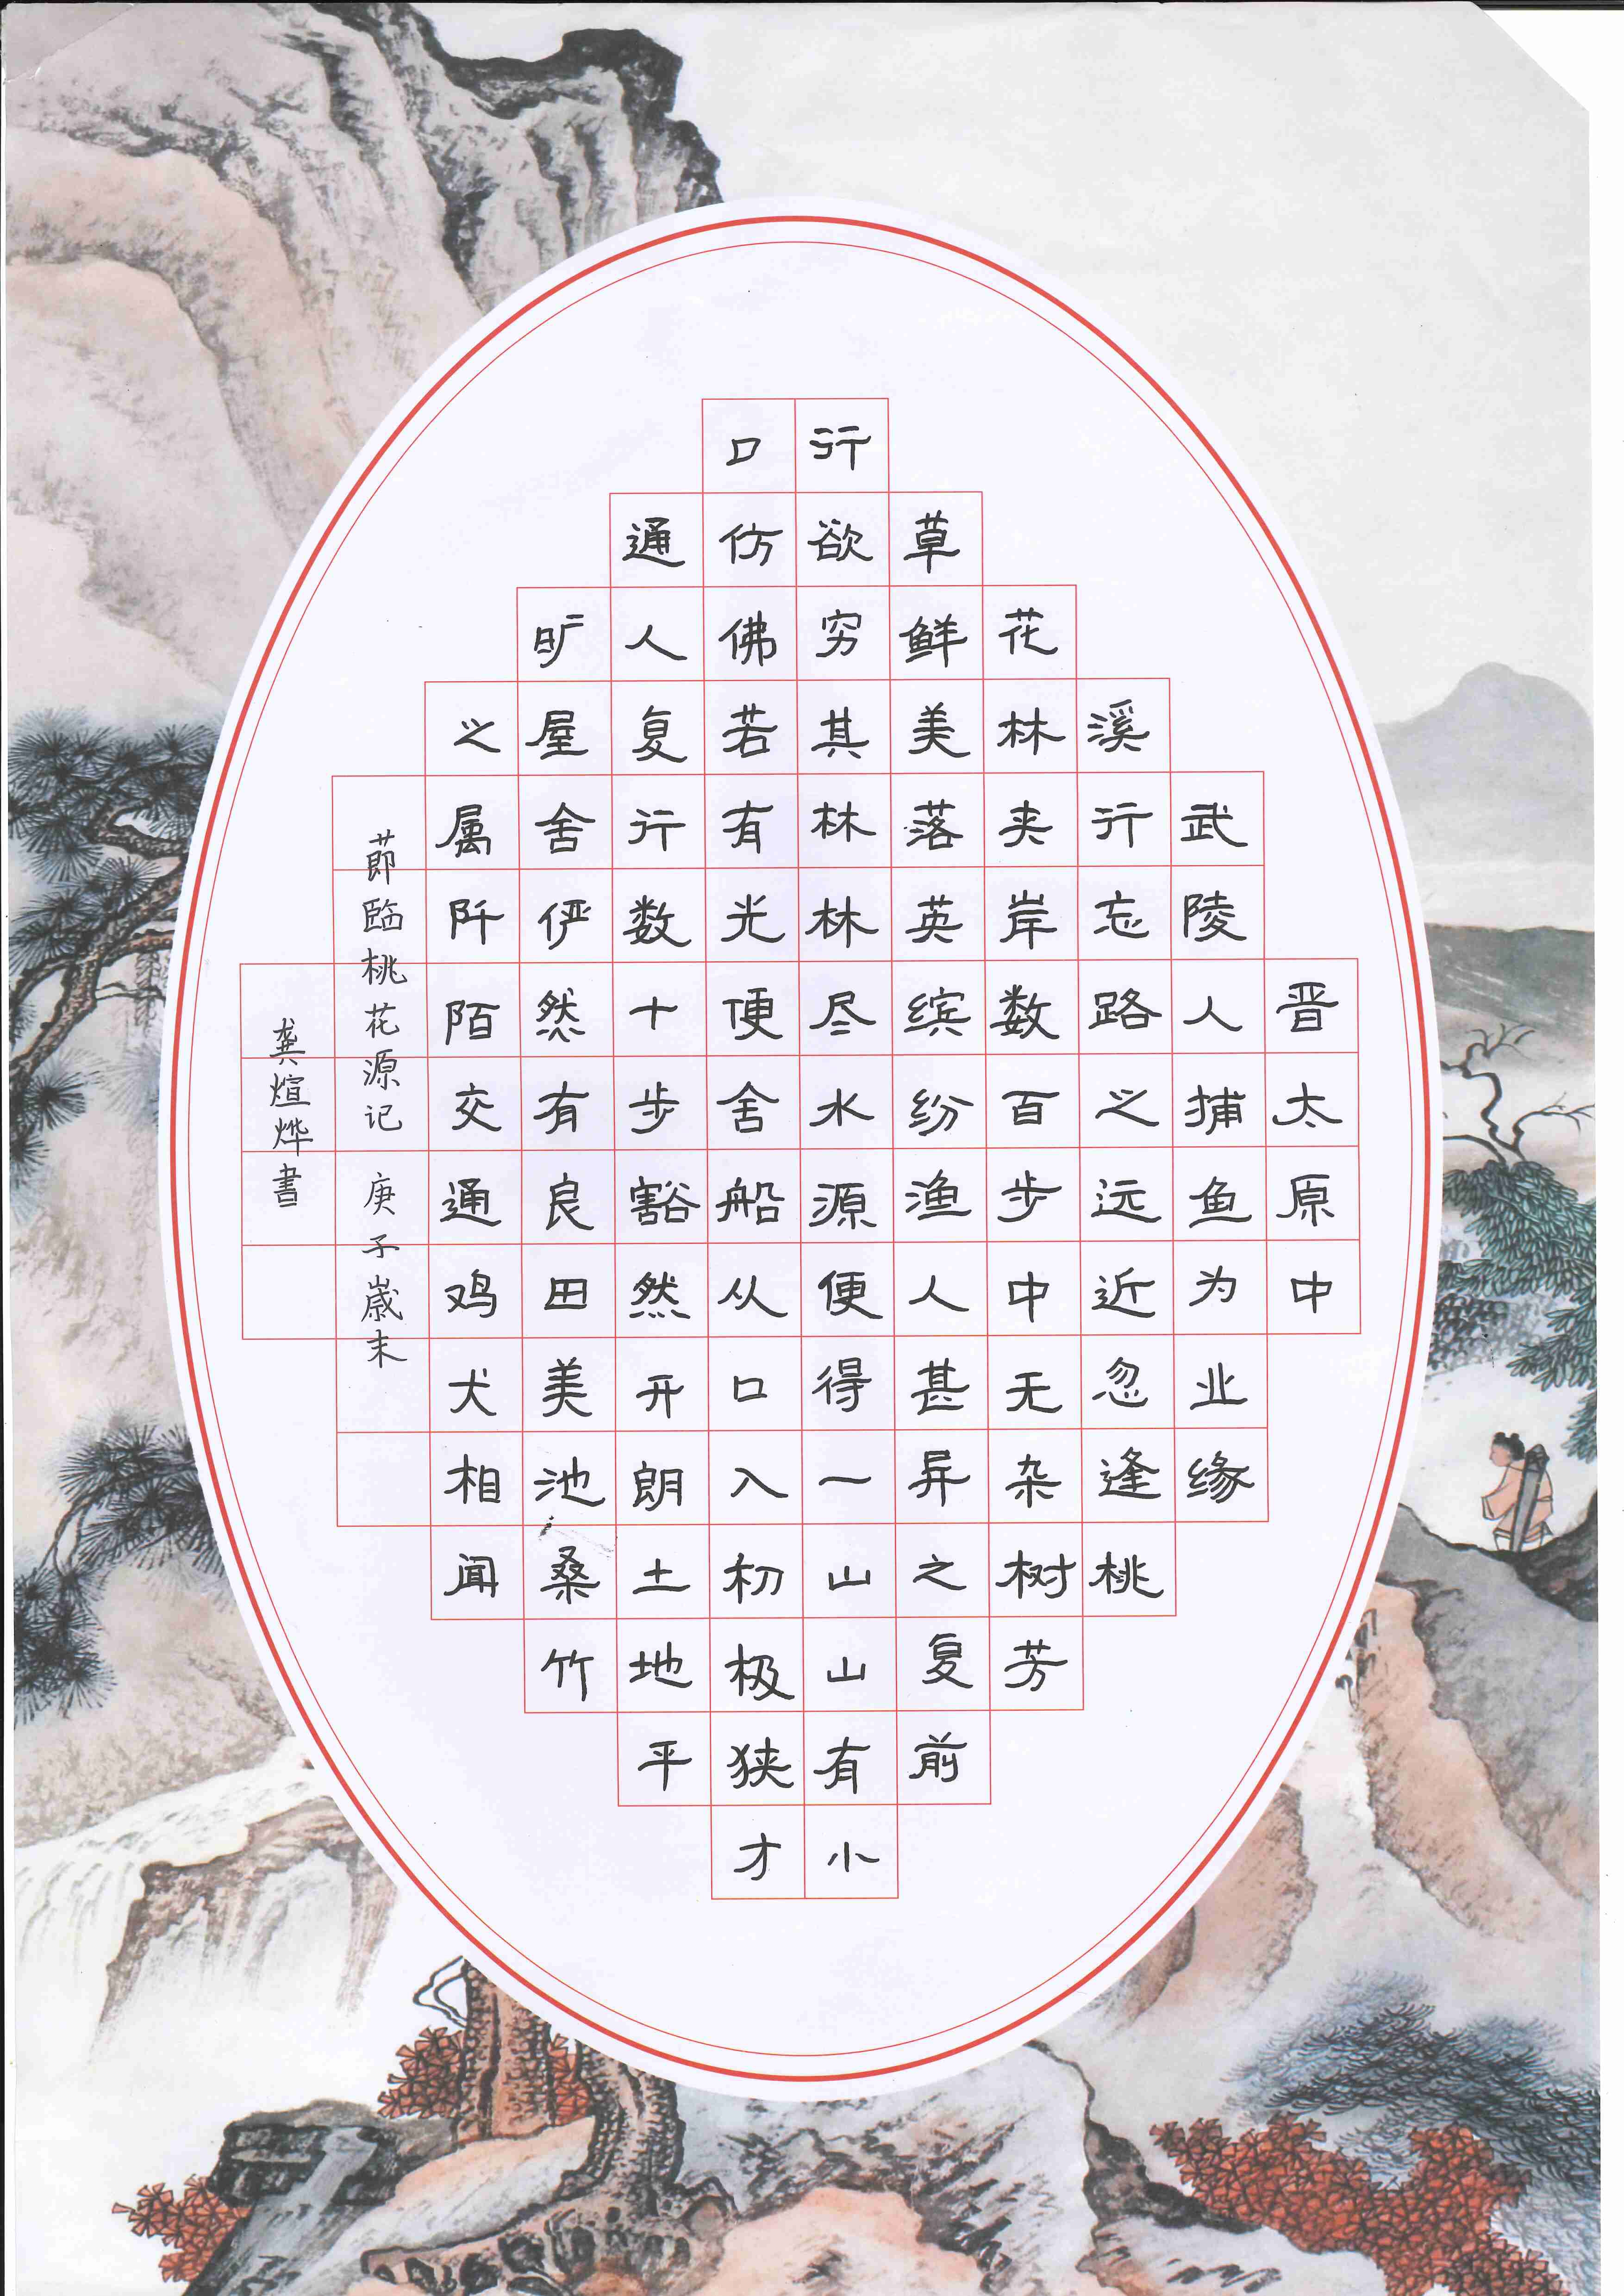 晋太原中
武陵人捕鱼为业缘
溪行忘路之远近忽逢桃
花林夹岸数百步中无杂树芳
草鲜美落英缤纷渔人甚异之复前
行欲穷其林林尽水源便得一山山有小
口仿佛若有光便舍船从口入初极狭才
通人复行数十步豁然开朗土地平
旷屋舍俨然有良田美池桑竹
之属阡陌交通鸡犬相闻
莭臨桃花源记 庚子歳末
龚煊烨書